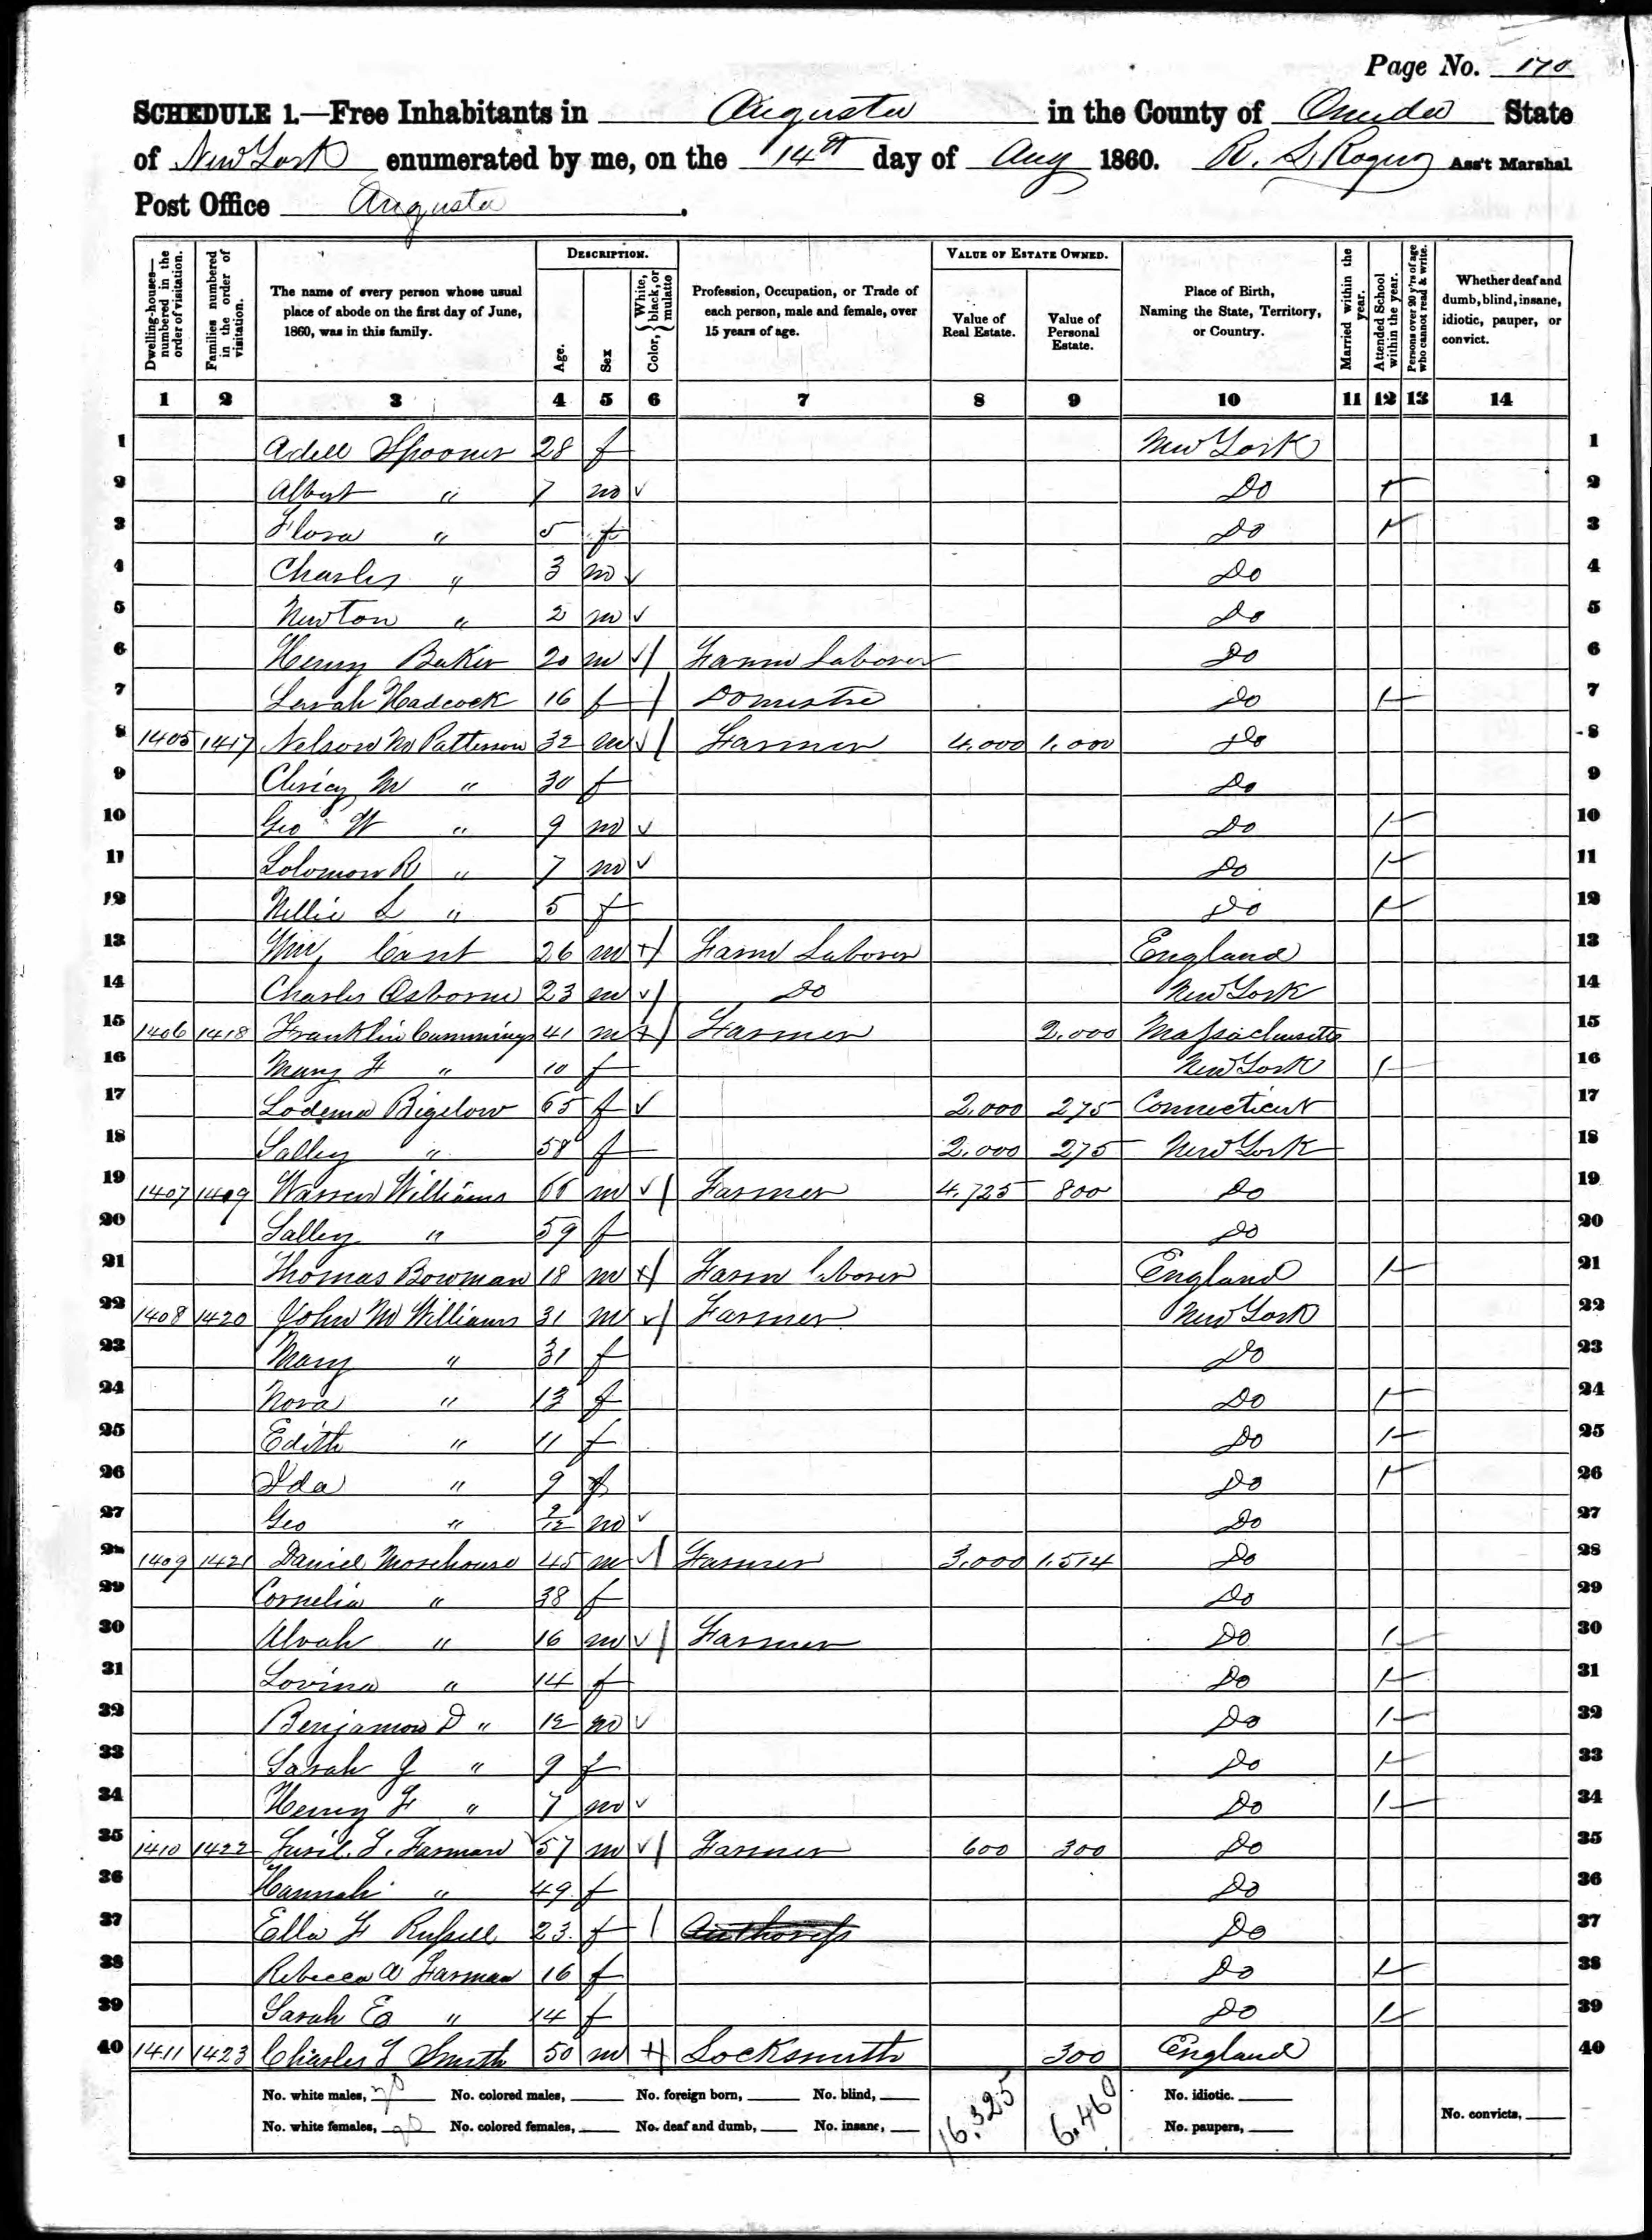 Page No. 170
SCHEDULE 1.—Free Inhabitants in Augusta in the County of Oneida State
of New York enumerated by me, on the 14th day of Aug 1860. R. S. Rogers Ass't Marshal
Post Office Augusta.
Dwelling-houses—numbered in the order of visitation.
Families numbered in the order of visitation.
The name of every person whose usual place of abode on the first day of June, 1860, was in this family.
DESCRIPTION.
Age.
Sex
Color, { White, black, or mulatto
Profession, Occupation, or Trade of each person, male and female, over 15 years of age.
VALUE OF ESTATE OWNED.
Value of Real Estate.
Value of Personal Estate.
Place of Birth, Naming the State, Territory, or Country.
Married within the year.
Attended School within the year.
Persons over 20 y'rs of age who cannot read & write.
Whether deaf and dumb, blind, insane, idiotic, pauper, or convict.
1 2 3 4 5 6 7 8 9 10 11 12 13 14
1 Adell Spooner 28 f New York 1
2 Albert " 7 m ✓ Do / 2
3 Flora " 5 f Do / 3
4 Charles " 3 m ✓ Do 4
5 Newton " 2 m ✓ Do 5
6 Henry Baker 20 m ✓/ Farm Laborer Do 6
7 Sarah Hadcock 16 f / Domestic Do / 7
8 1405 1417 Nelson M Patterson 32 m ✓/ Farmer 4,000 1,000 Do 8
9 M " 30 f Do 9
10 Geo W " 9 m ✓ Do / 10
11 Solomon R " 7 m ✓ Do / 11
12 Nellie L " 5 f Do / 12
13 Wm Cant 26 m +/ Farm Laborer England 13
14 Charles Osborne 23 m ✓/ Do New York 14
15 1406 1418 Franklin Cummings 41 m +/ Farmer 2,000 Massachusetts 15
16 Mary F " 10 f New York / 16
17 Lodema Bigelow 65 f ✓ 2,000 275 Connecticut 17
18 Salley " 58 f 2,000 275 New York 18
19 1407 1409 Warren Williams 66 m ✓/ Farmer 4,725 800 Do 19
20 Salley " 59 f Do 20
21 Thomas Bowman 18 m +/ Farm Laborer England / 21
22 1408 1420 John M Williams 31 m ✓/ Farmer New York 22
23 Mary " 31 f Do 23
24 Nora " 13 f Do / 24
25 Edith " 11 f Do / 25
26 Ida " 9 f Do / 26
27 Geo " 9/12 m ✓ Do 27
28 1409 1421 Daniel Morehouse 45 m ✓/ Farmer 3,000 1,514 Do 28
29 Cornelia " 38 f Do 29
30 Alvah " 16 m ✓/ Farmer Do / 30
31 Lovina " 14 f Do / 31
32 Benjamin D " 12 m ✓ Do / 32
33 Sarah J " 9 f Do / 33
34 Henry F " 7 m ✓ Do / 34
35 1410 1422 L. Farman 57 m ✓/ Farmer 600 300 Do 35
36 Hannah " 49 f Do 36
37 Ella F Russell 23 f / Authoress Do 37
38 Rebecca A Farman 16 f Do / 38
39 Sarah E " 14 f Do / 39
40 1411 1423 Charles L Smith 50 m +/ Locksmith 300 England 40
No. white males, 20 No. colored males, No. foreign born, No. blind, 16,325 6,460 No. idiotic.
No. white females, 20 No. colored females, No. deaf and dumb, No. insane, No. paupers, No. convicts,